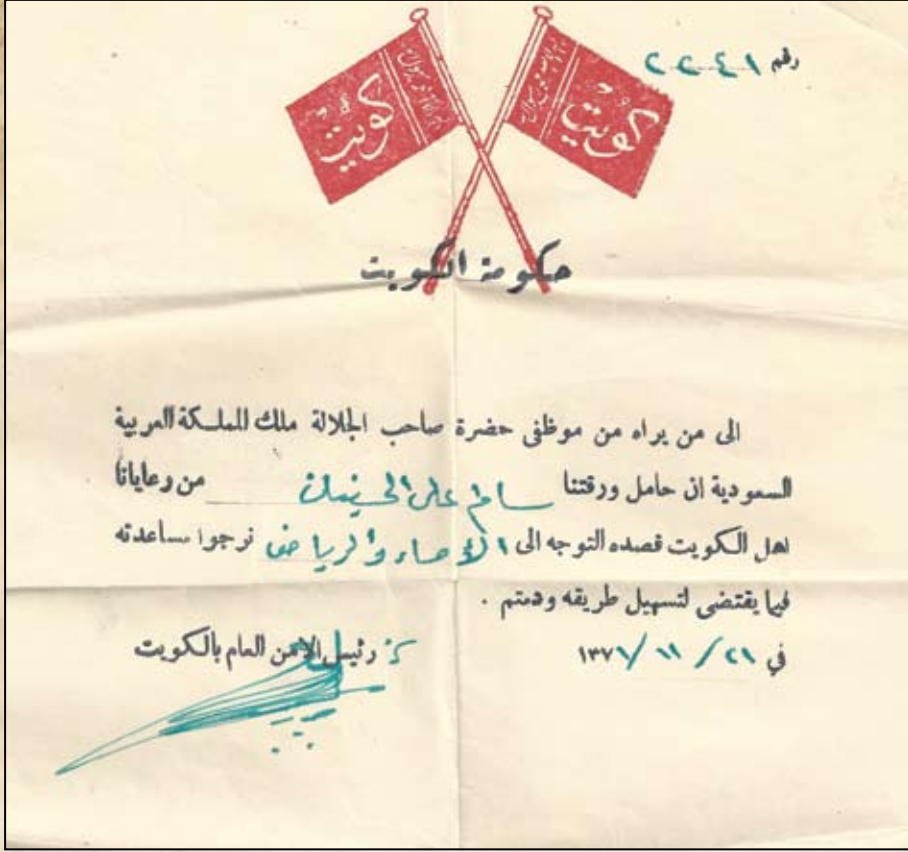 رقم ٢٢٤١
كويت
كويت
حكومة الكويت
الى من يراه من موظفى حضرة صاحب الجلالة ملك المملكة العربية
السعودية ان حامل ورقتنا سالم علي من رعايانا
اهل الكويت قصده التوجه الى الاحساء والرياض نرجوا مساعدته
فيما يقتضى لتسهيل طريقه ودمتم .
في ٢١ / ١١ / ١٣٧١
رئيس الامن العام بالكويت